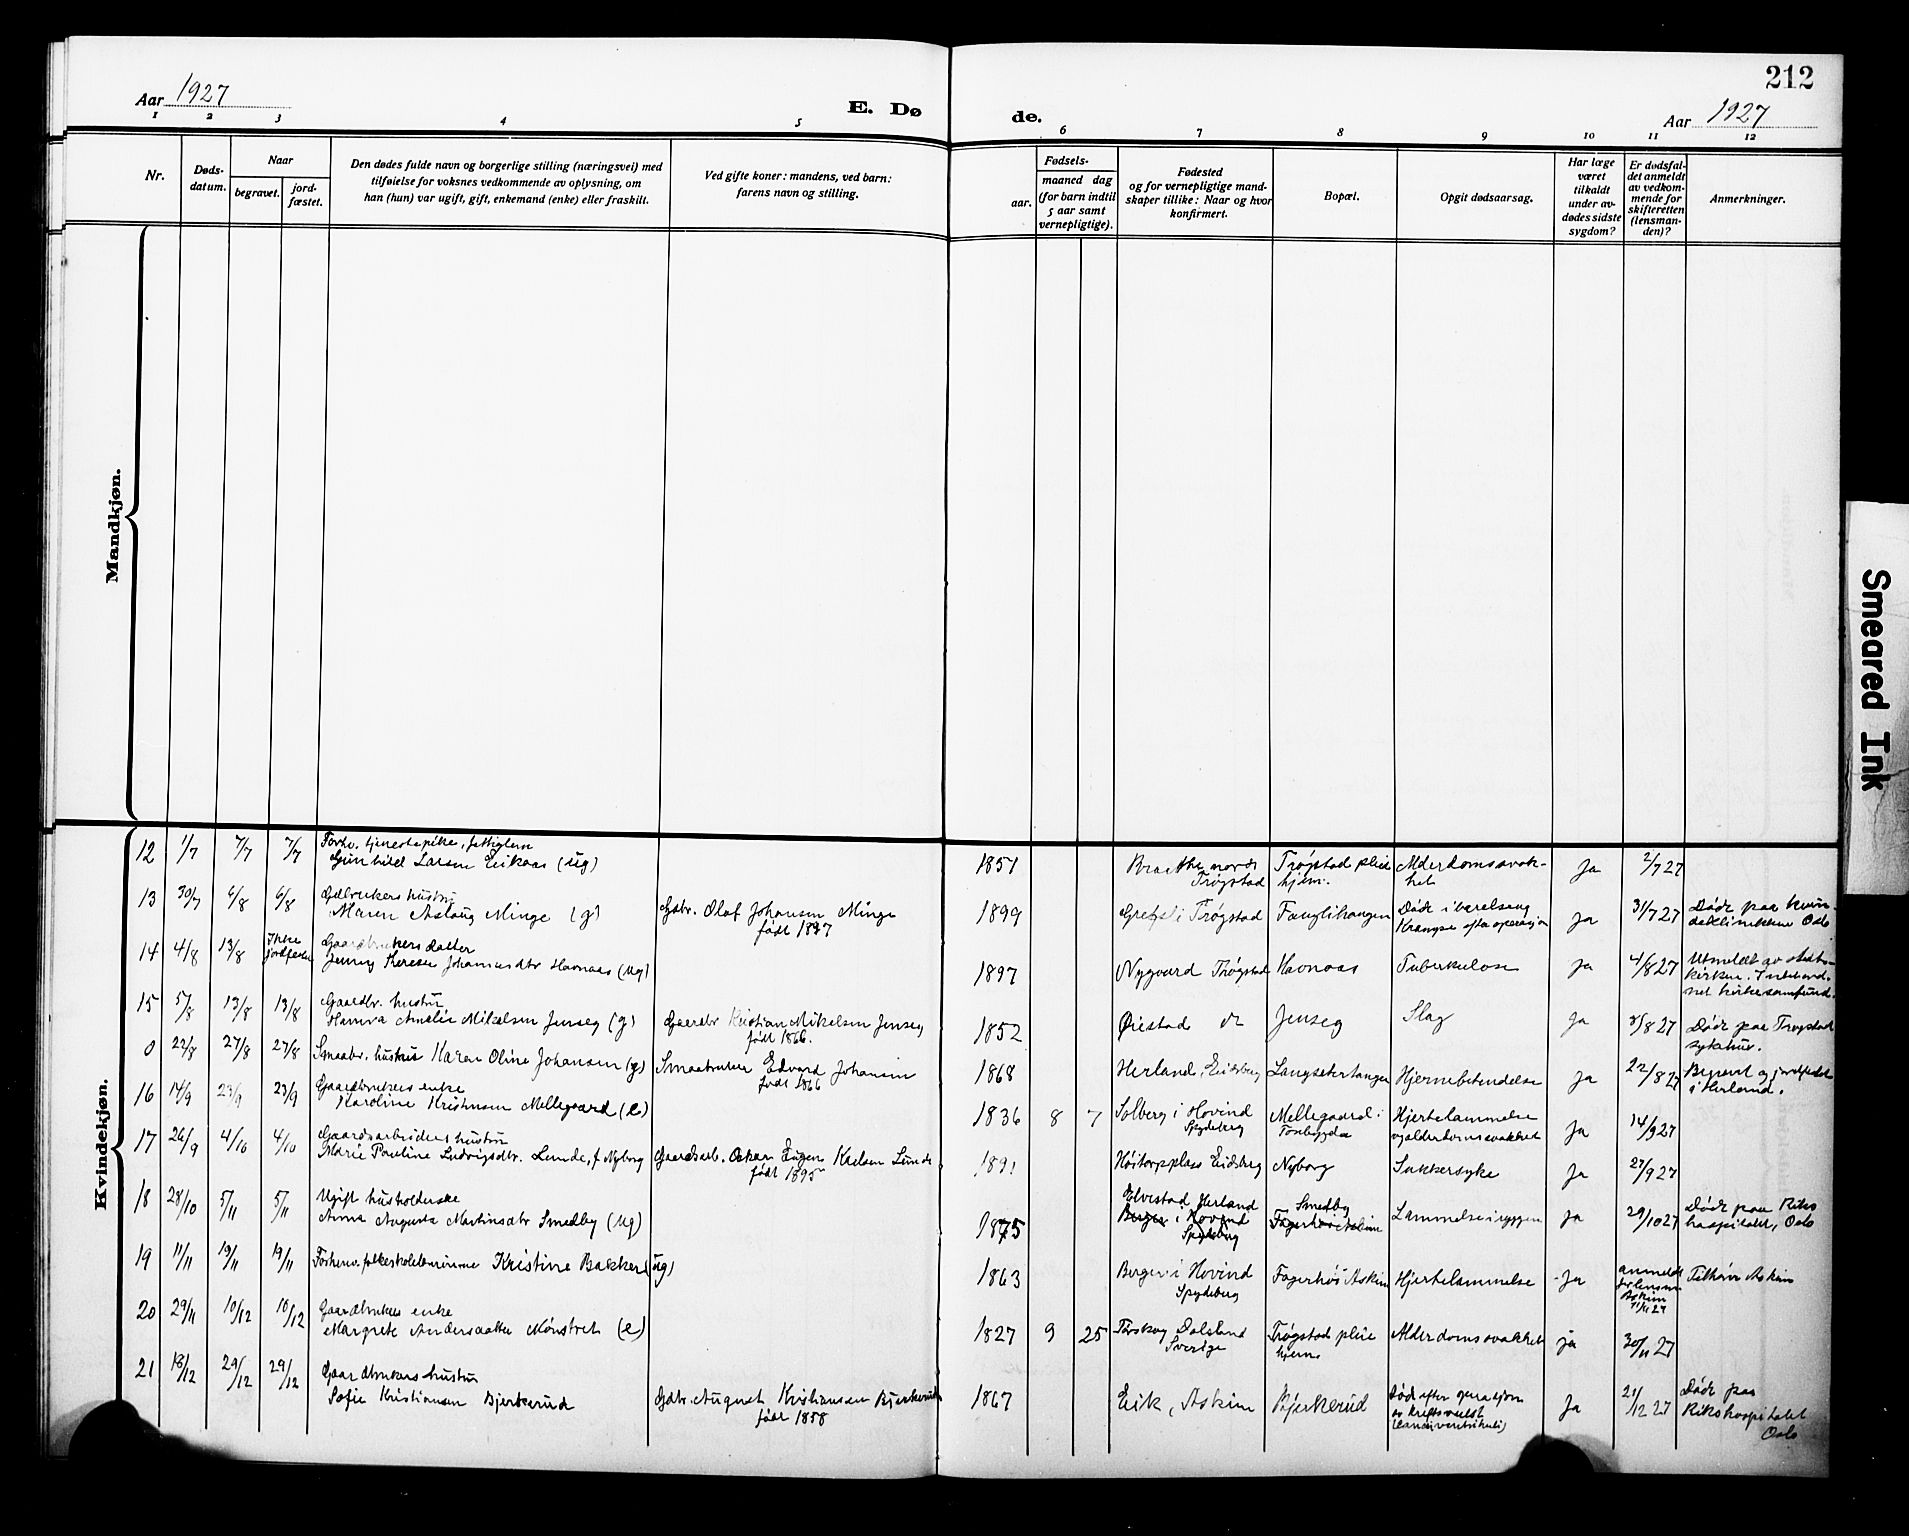 212
Aar 1927
E. Døde.
Aar 1927
1 2 3 4 5 6 7 8 9 10 11 12
Nr.
Døds-
datum.
Naar
begravet.
jord-
fæstet.
Den dødes fulde navn og borgerlige stilling (næringsvei) med
tilføielse for voksnes vedkommende av oplysning, om
han (hun) var ugift, gift, enkemand (enke) eller fraskilt.
Ved gifte koner: mandens, ved barn:
farens navn og stilling.
Fødsels-
aar.
maaned dag
(for barn indtil
5 aar samt
vernepligtige).
Fødested
og for vernepligtige mand-
skaper tillike: Naar og hvor
konfirmert.
Bopæl.
Opgit dødsaarsag.
Har læge
været
tilkaldt
under av-
dødes sidste
sygdom?
Er dødsfal-
det anmeldt
av vedkom-
mende for
skifteretten
(lensman-
den)?
Anmerkninger.
Mandkjøn.
Kvindekjøn.
12 1/7 7/7 7/7 Forhv. tjenestepike, fattiglem
Gunhild Larsen Eikaas (ug)
1851 Braathe nordr Trøgstad Trøgstad pleie
hjem. Alderdomssvak-
het Ja 2/7 27
13 30/7 6/8 6/8 Gdbrukers hustru
Maren Aslaug Minge (g) Gdbr. Olaf Johansen Minge
født 1897
1899 Trøgstad Fanglihangen Død i barselseng
Krampe efter operasjon Ja 31/7 27 Død paa kvin-
deklinikken Oslo
14 4/8 13/8 Ikke
jordfestet Gaardbrukers datter
Jenny Therese Johannesdtr Havnaas (ug)
1897 Nygaard Trøgstad Havnaas Tuberkulose Ja 4/8 27 Utmeldt av stats-
kirken.
15 5/8 13/8 13/8 Gaardbr. hustru
Hanna Amalie Mikelsen Jenseg (g) Gaardbr Kristian Mikelsen Jenseg
født 1866.
1852 Øiestad do Jenseg Slag Ja 8/8 27 Død paa Trøgstad
sykehus.
0 22/8 27/8 27/8 Smaabr. hustru Karen Oline Johansen (g) Smaabruker Edvard Johansen
født 1866
1868 Herland, Eidsberg Langsæterhangen Hjernebetendelse Ja 22/8 27 Begravet og jordfæstet
i Herland.
16 14/9 23/9 23/9 Gaardbrukers enke
Karoline Kristensen Mellegaard (e)
1836 8 7 Solberg i Hovind
Spydeberg Mellegaard i
Tosebygda Hjertelammelse
og alderdomssvakhet Ja 14/9 27
17 26/9 4/10 4/10 Gaardsarbeiders hustru
Marie Pauline Ludvigsdtr. Lunde, f. Nyborg Gaardsarb. Oskar Eugen Karlsen Lunde
født 1895
1891 Høitorpplass Eidsberg Nyborg Sukkersyke Ja 27/9 27
18 28/10 5/11 5/11 Ugift husholderske
Anna Augusta Martinsdtr Smedby (ug)
1875 Elvestad Herland
Berger i Hovind
Spydeberg Smedby
Fagerhøi Askim Lammelse i ryggen Ja 29/10 27 Død paa Riks
hospitalet, Oslo
19 11/11 19/11 19/11 Forhenv. folkeskolelærerinne Kristine Bakker (ug)
1863 Berger i Hovind
Spydeberg Fagerhøi Askim Hjertelammelse Ja anmeldt
for lensm
Askim
11/11 27 Tilhører Askim
20 29/11 10/12 10/12 Gaardbrukers enke
Margrete Andersdatter Mønstret (e)
1827 9 25 Torskog Dalsland
Sverige Trøgstad pleie
hjem Alderdomssvakhet ja 30/11 27
21 18/12 29/12 29/12 Gaardbrukers hustru
Sofie Kristiansen Bjerkerud Gdbr. August Kristiansen Bjerkerud
født 1858
1867 Eik, Askim Bjerkerud Død efter operasjon
av kreftsvulst
(Cancer ventriculi) Ja 21/12 27 Død paa
Rikshospitalet
Oslo
Smeared Ink